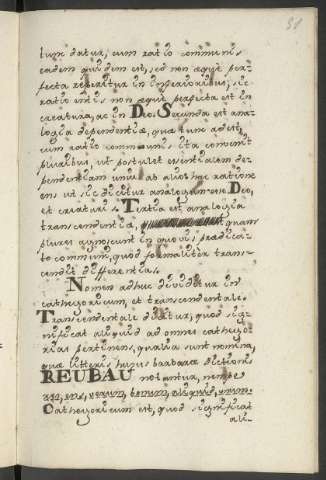 51
tum datur, cum ratio communis
eadem quidem est, sed non æque per-
fecta reperitur in inferioribus; sic
ratio entis non æque perfecta est in
creatura, ac in Deo. Secunda est ana-
logia dependentiæ, quæ tum adest,
cum ratio communis ita convenit
pluribus, ut postulet essentialem de-
pendentiam unius ab alio: hac ratione
ens ut sic dicitur analogum Deo,
et creaturis. Tertia est analogia
transcendentiæ, quam
plures agnoscunt in quovis prædica-
to communi, quod formaliter trans-
cendit differentias.
Nomen adhuc dividitur in
cathegoricum, et transcendentale.
Transcendentale dicitur, quod sig-
nificat aliquid ad omnes cathego-
rias pertinens, qualia sunt nomina,
quæ litteris hujus barbaræ dictionis
REUBAU notantur, nempe
res, ens, verum, bonum, aliquid, unum.
Cathegoricum est, quod significat
ali-